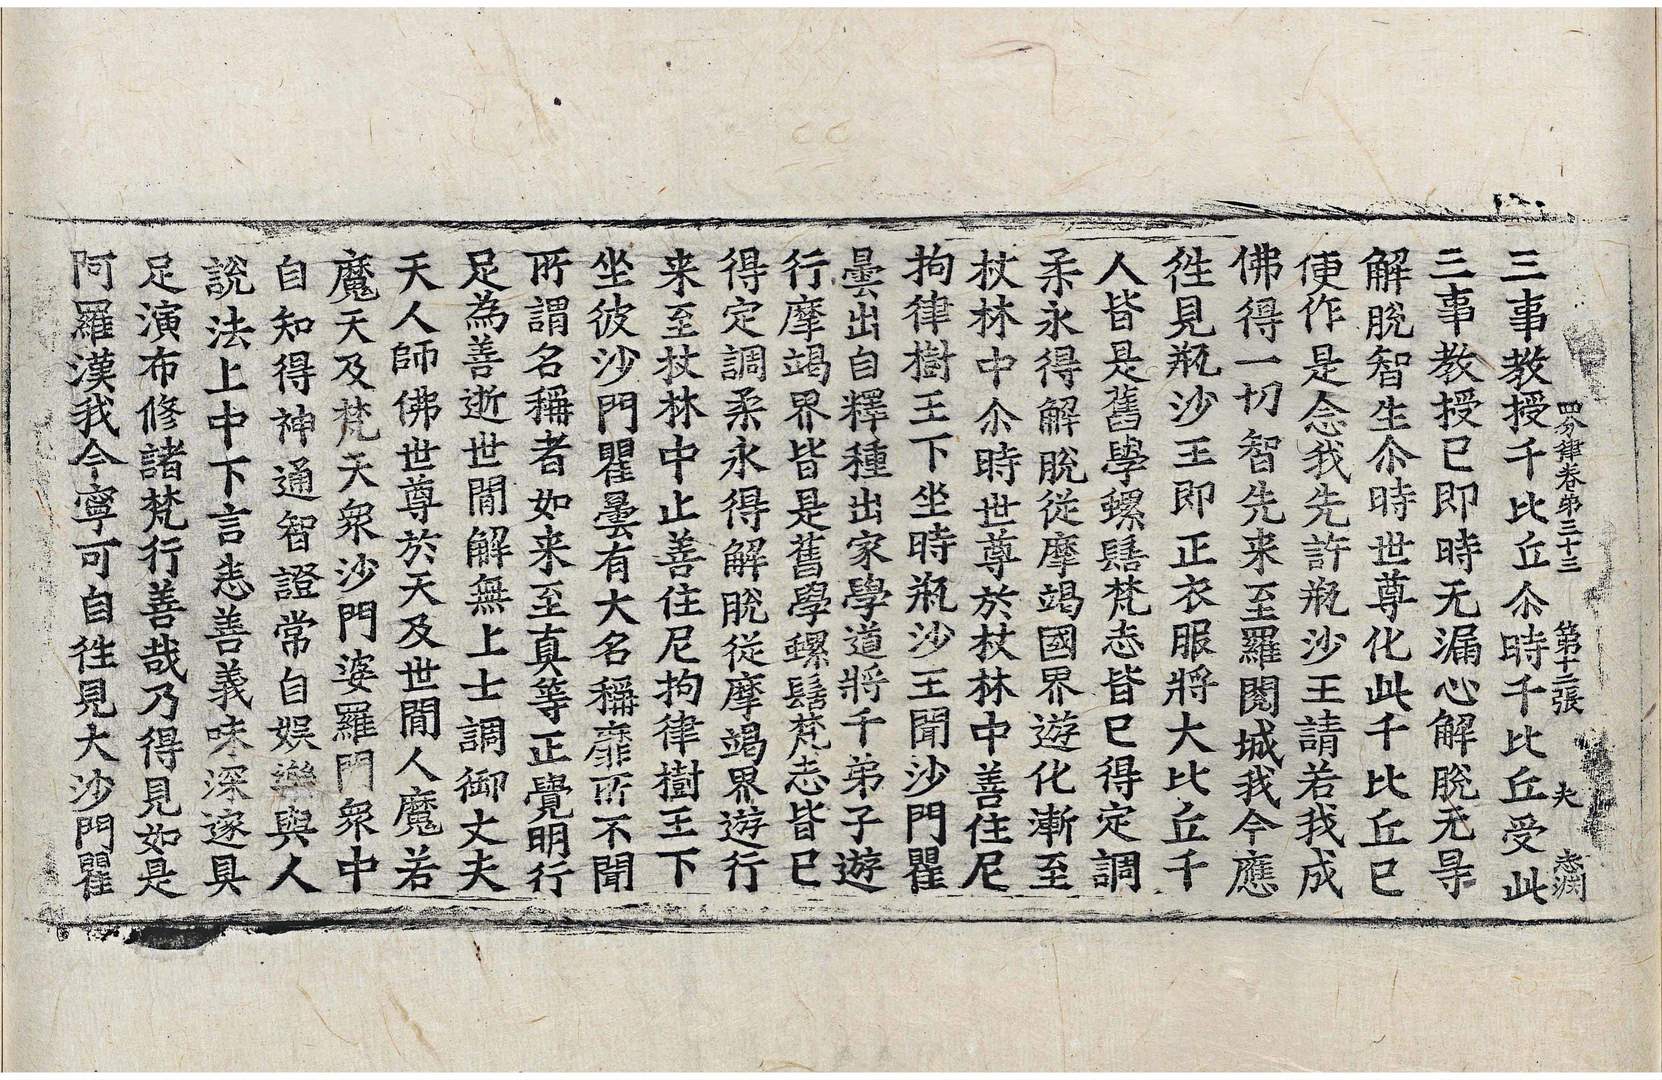 四分律卷第三十三 第十二張 夫 志淵
三事教授千比丘尒時千比丘受此
三事教授已即時无漏心解脫无㝵
解脫智生尒時世尊化此千比丘已
便作是念我先許瓶沙王請若我成
佛得一切智先来至羅閱城我今應
徃見瓶沙王即正衣服將大比丘千
人皆是舊學螺髻梵志皆已得定調
柔永得解脫從摩竭國界遊化漸至
杖林中尒時世尊於杖林中善住尼
拘律樹王下坐時瓶沙王聞沙門瞿
曇出自釋種出家學道將千弟子遊
行摩竭界皆是舊學螺髻梵志皆已
得定調柔永得解脫從摩竭界遊行
来至杖林中止善住尼拘律樹王下
坐彼沙門瞿曇有大名稱靡所不聞
所謂名稱者如来至真等正覺明行
足為善逝世閒解無上士調御丈夫
天人師佛世尊於天及世閒人魔若
魔天及梵天衆沙門婆羅門衆中
自知得神通智證常自娛樂與人
說法上中下言悉善義味深邃具
足演布修諸梵行善哉乃得見如是
阿羅漢我今寧可自徃見大沙門瞿